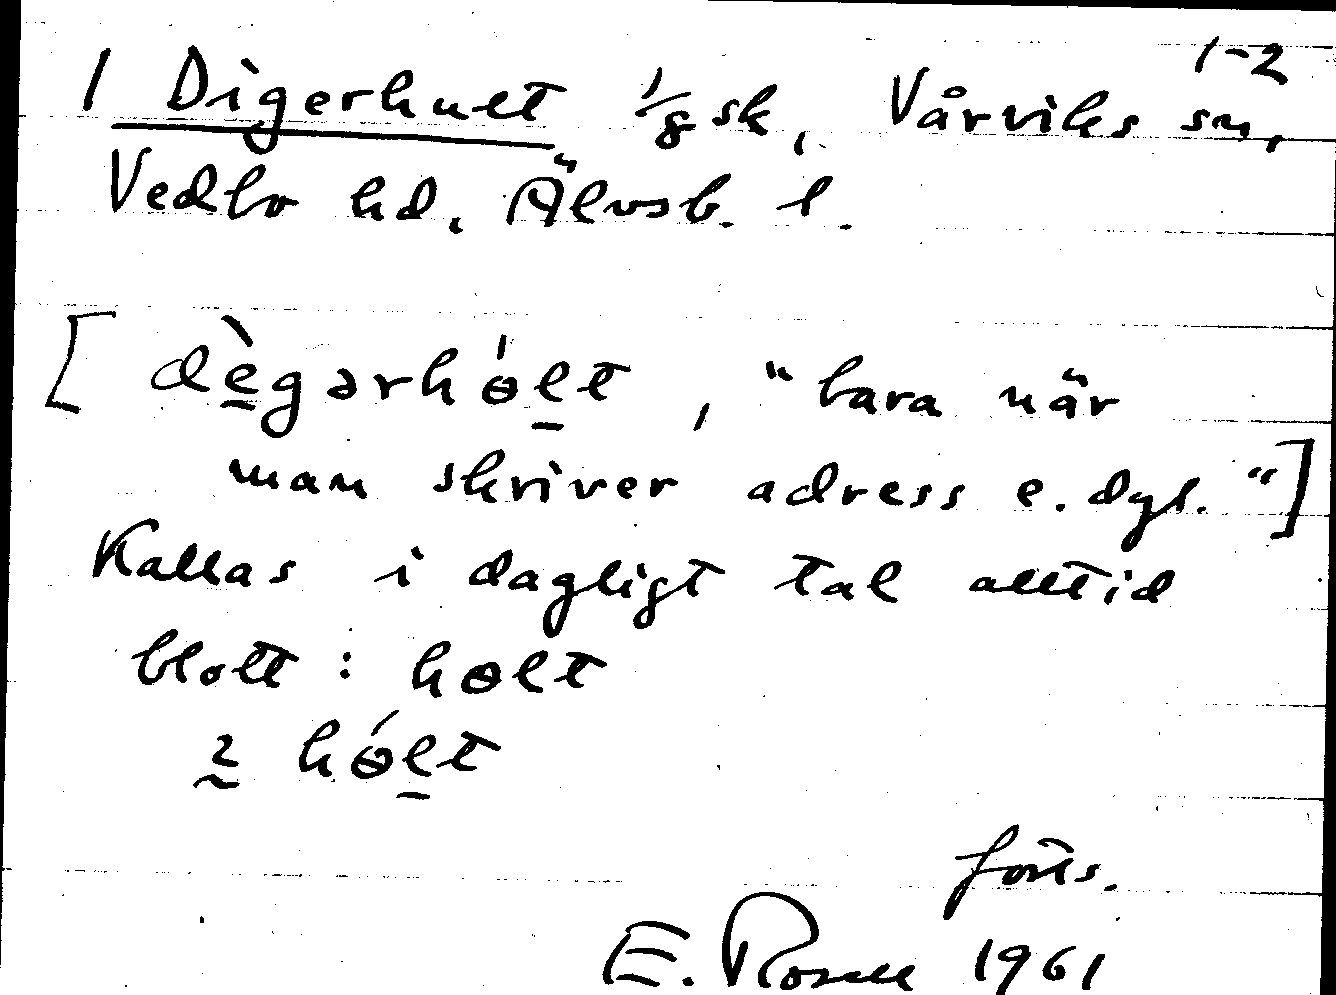 1-2
1 Digerhult 1/8 sk, Vårviks sn,
Vedbo hd. Älvsb. l.
[dègərhɵ́lt, "bara när
man skriver adress e. dyl."]
Kallas i dagligt tal alltid
blott: hɵlt
2 hɵ́lt
forts.
E. Rosell 1961